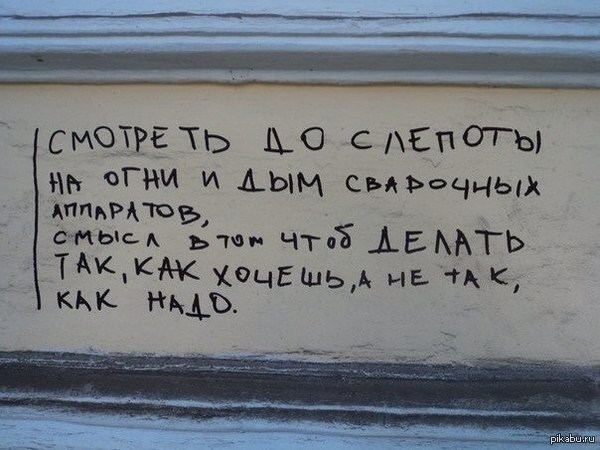 СМОТРЕТЬ ДО СЛЕПОТЫ
НА ОГНИ И ДЫМ СВАРОЧНЫХ
АППАРАТОВ,
СМЫСЛ В ТОМ ЧТОБ ДЕЛАТЬ
ТАК, КАК ХОЧЕШЬ, А НЕ ТАК,
КАК НАДО.
pikabu.ru